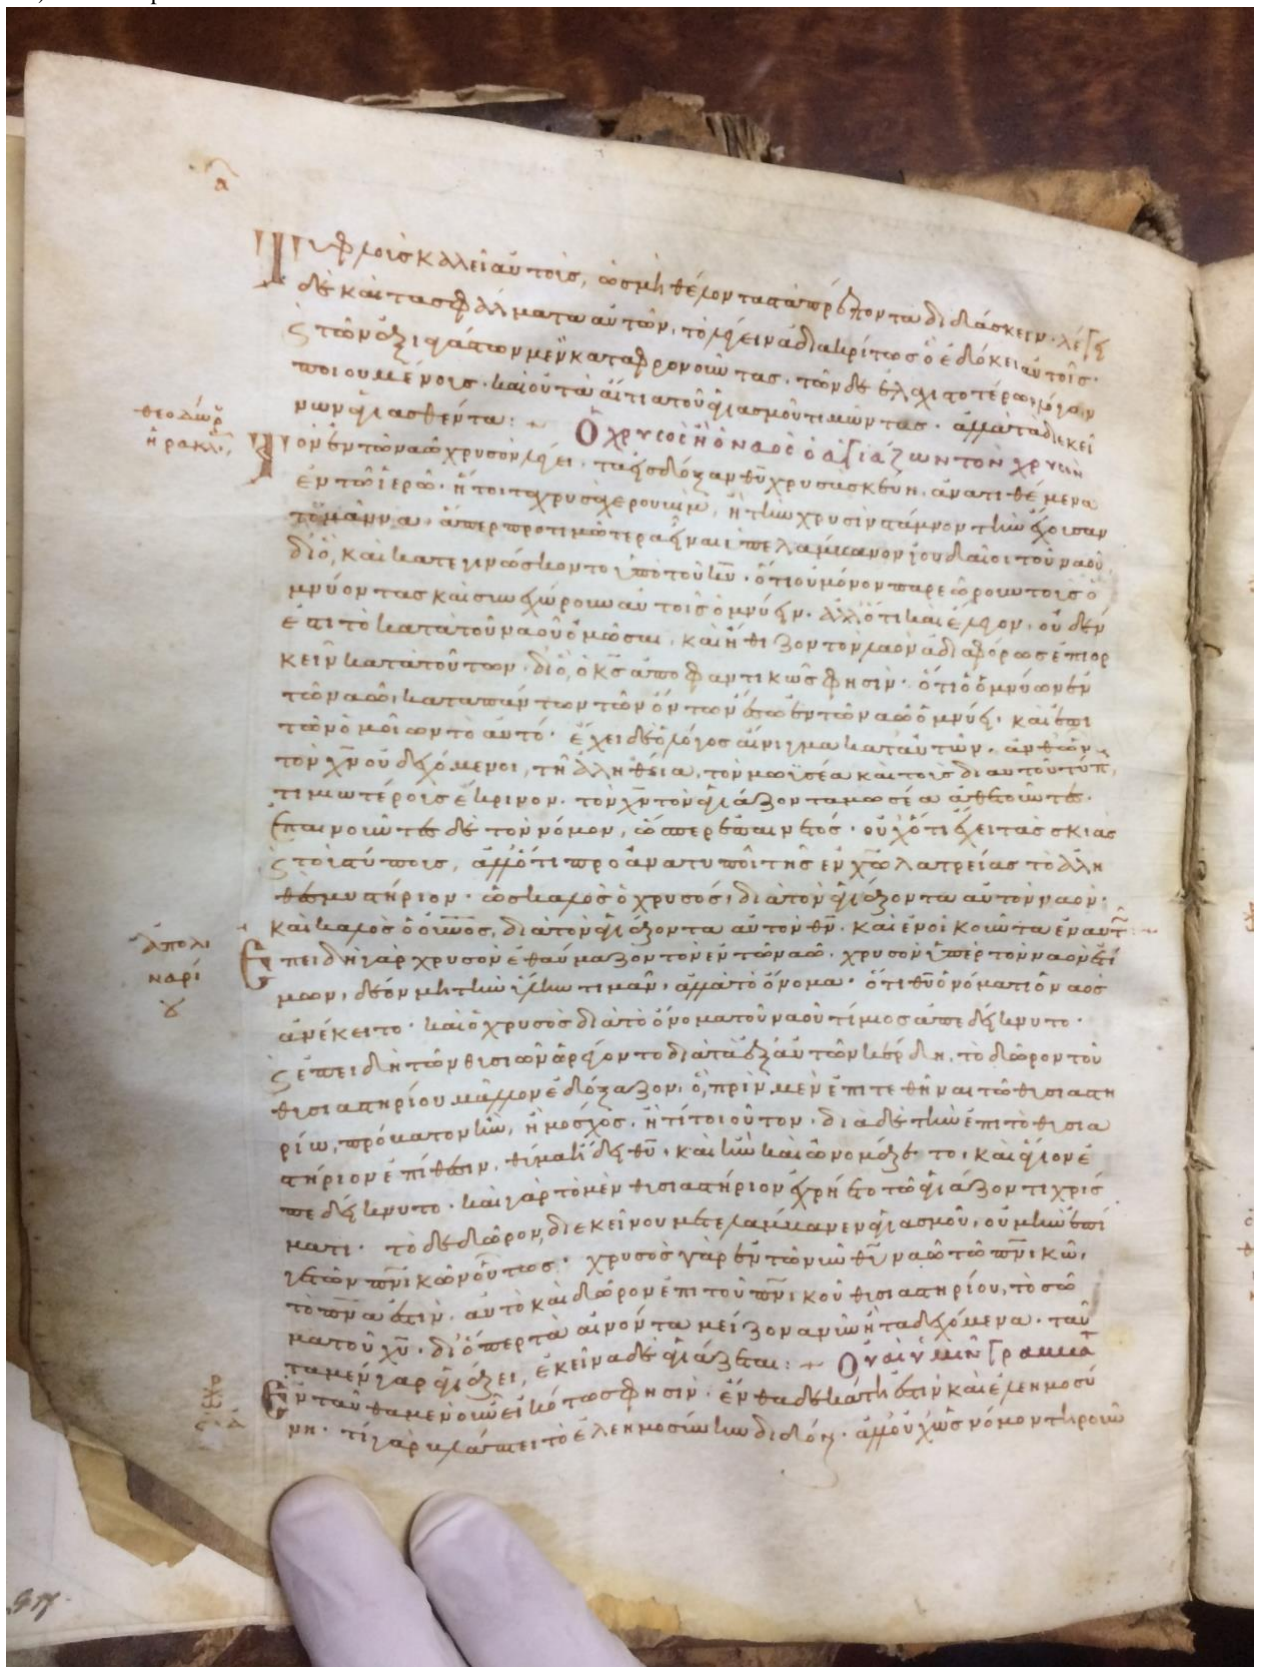 α
Τυφλοὺς καλεῖ αὐτοὺς, ὡς μὴ θέλοντας τὰ πρέποντα διδάσκειν. λέγει
δὲ καὶ τὰ σφάλματα αὐτῶν, τὸ λέγειν ἀδιακρίτως ὃ ἐδόκει αὐτοῖς.
τῶν ἀξιαγάστων μὲν καταφρονοῦντας. τῶν δὲ
ποιουμένοις. καὶ οὐ τὰ αἴτια τοῦ ἁγιασμοῦ τιμῶντας. ἀλλὰ τὰ δι ἐκεί
νων ἁγιασθέντα:
Ὁ χρυσὸς ἢ ὁ ναὸς ὁ ἁγιάζων τὸν χρυσόν
θεοδώρ
ἡρακλ
Τὸν ἐν τῶ ναῶ χρυσὸν λέγει. τὰ εἰς δόξαν θυ χρυσᾶ σκεύη. ἀνατιθέμενα
ἐν τῶ ἱερῶ. ἤτοι τὰ χρυσᾶ χερουβὶμ, ἢ τὴν χρυσὴν στάμνον τὴν ἔχουσαν
τὸ μάννα. ἅπερ προτιμώτερα εἶναι ὑπελάμβανον ἰουδαῖοι τοῦ ναοῦ.
διὸ, καὶ κατεγινώσκοντο ὑπὸ τοῦ κυ. ὅτι οὐ μόνον παρεώρουν τοὺς ὀ
μνύοντας καὶ συνεχώρουν αὐτοῖς ὀμνύειν. ἀλλ ὅτι καὶ ἔλεγον. οὐδέν
ἐπὶ τὸ κατὰ τοῦ ναοῦ ὀμῶσαι. καὶ ἤθιζον τὸν λαὸν ἀδιαφόρως ἐπιορ
κεῖν κατὰ τούτων. διὸ, ὁ κς ἀποφαντικῶς φησίν. ὅτι ὁ ὀμνύων ἐν
τῶ ναῶ, κατὰ πάντων τῶν ὄντων ἐν τῶ ναῶ ὀμνύει. καὶ ἐπὶ
τῶν ὁμοίων τὸ αὐτό. ἔχει δὲ ὁ λόγος αἴνιγμα κατ αὐτῶν. ἀνθ ὧν
τὸν χν οὐ δεχόμενοι, τῆ ἀληθεία, τὸν μωϋσέα καὶ τοὺς δι αὐτοῦ τύπ
τιμιωτέρους ἔκρινον. τὸν χν τὸν ἁγιάζοντα μωσέα ἀθετοῦντες.
ἐπαινοῦντες δὲ τὸν νόμον, ὥσπερ ἐπαινετός. οὐχ ὅτι ἔχει τὰς σκιὰς
τοὺς τύπους, ἀλλ ὅτι προανατυποῖ τῆς ἐν χω λατρείας τὸ ἀλη
θὲς μυστήριον. ὡς καλὸς ὁ χρυσός, διὰ τὸν ἁγιάζοντα αὐτὸν ναόν.
καὶ καλὸς ὁ οὐνος, διὰ τὸν ἁγιάζοντα αὐτὸν θν. καὶ ἐνοικοῦντα ἐν αυτ
ἀπολι
ναρί
ου
Ἐπειδὴ γὰρ χρυσὸν ἐθαύμαζον τὸν ἐν τῶ ναῶ. χρυσὸν ὑπὲρ τὸν ναὸν ἐτί
μων, δέον μὴ τὴν ὕλην τιμᾶν, ἀλλὰ τὸ ὄνομα. ὅτι θυ ὀνόματι ὁ ναὸς
ἀνέκειτο. καὶ ὁ χρυσὸς διὰ τὸ ὄνομα τοῦ ναοῦ τίμιος ἀπεδείκνυτο.
ἐπειδὴ τῶν θυσιῶν ἀντείχοντο διὰ τὰ ἐξ αὐτῶν κέρδη, τὸ δῶρον τοῦ
θυσιαστηρίου μᾶλλον ἐδόξαζον. ὃ, πρὶν μὲν ἐπιτεθῆναι τῶ θυσιαστη
ρίω, πρόβατον ἦν, ἢ μόσχος. ἤ τι τοιοῦτον. διὰ δὲ τὴν ἐπὶ τὸ θυσια
στήριον ἐπίθεσιν, θῦμα ἤδη θυ. καὶ ἦν καὶ ὠνομάζετο, καὶ ἅγιον ἐ
πεδείκνυτο. καὶ γὰρ τὸ μὲν θυσιαστήριον ἐχρίετο τῶ ἁγιάζοντι χρίσ
ματι. τὸ δὲ δῶρον, δι ἐκείνου μετελάμβανεν ἁγιασμοῦ, οὐ μὴν ἐπί
γε τῶν πνικῶν οὕτως. χρυσὸς γὰρ ἐν τῶ νῦν θυ ναῶ τῶ πνικῶ,
τὸ πνα ἐστιν. αὐτὸ καὶ δῶρον ἐπὶ τοῦ πνικοῦ θυσιαστηρίου, τὸ σῶ
μα τοῦ χυ. διόπερ τὰ αἰνοντα μείζονα νῦν ἢ τὰ δεχόμενα. ταῦ
τα μὲν γὰρ ἁγιάζει, ἐκεῖνα δὲ ἁγιάζεται:
Οὐαὶ ὑμῖν γραμμα
Ἐνταῦθα μὲν οὖν εἰκότως φησίν. ἔνθα δεκάτη ἐστὶν καὶ ἐλεημοσύ
νη. τί γὰρ βλάπτει τὸ ἐλεημοσύνην διδόναι. ἀλλ οὐχ ὡς νόμον τηροῦν